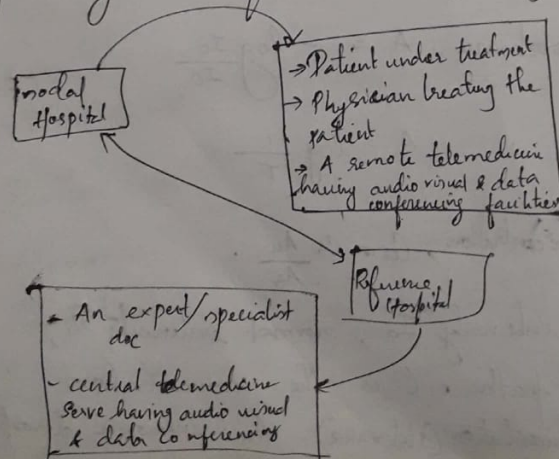 nodal
Hospital
→ Patient under treatment
→ Physician treating the
patient
→ A remote telemedicine
having audio visual & data
conferencing facilities
Reference
Hospital
- An expert/specialist
doc
- central telemedicine
serve having audio visual
& data conferencing